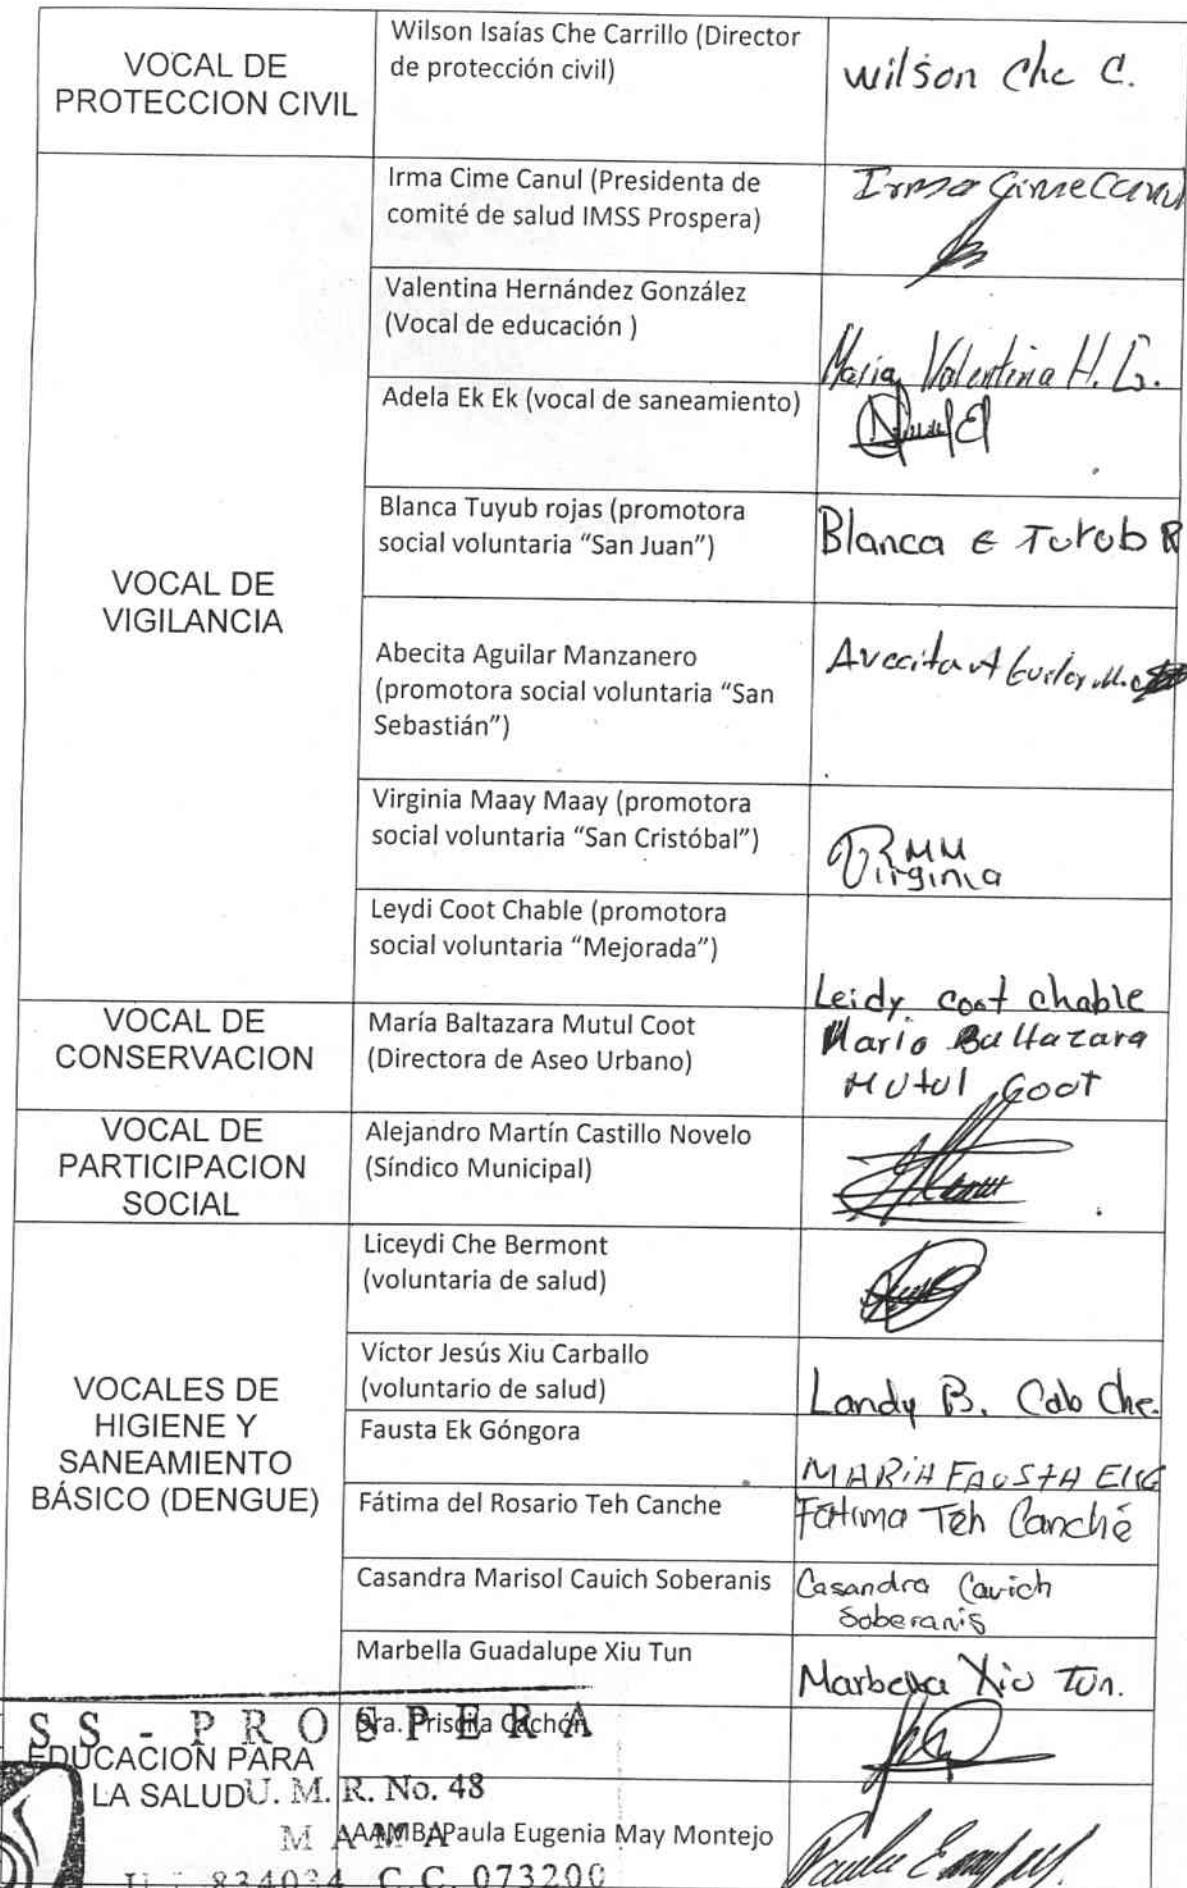 VOCAL DE
PROTECCION CIVIL
Wilson Isaías Che Carrillo (Director
de protección civil)
wilson Che C.
VOCAL DE
VIGILANCIA
Irma Cime Canul (Presidenta de
comité de salud IMSS Prospera)
Irma Cime Canul
Valentina Hernández González
(Vocal de educación )
Maria Valentina H. G.
Adela Ek Ek (vocal de saneamiento)
Blanca Tuyub rojas (promotora
social voluntaria “San Juan”)
Blanca E Tuyub R
Abecita Aguilar Manzanero
(promotora social voluntaria “San
Sebastián”)
Avecita A
Virginia Maay Maay (promotora
social voluntaria “San Cristóbal”)
Virginia
Leydi Coot Chable (promotora
social voluntaria “Mejorada”)
Leidy coot chable
VOCAL DE
CONSERVACION
María Baltazara Mutul Coot
(Directora de Aseo Urbano)
Maria Baltazara
Mutul Coot
VOCAL DE
PARTICIPACION
SOCIAL
Alejandro Martín Castillo Novelo
(Síndico Municipal)
VOCALES DE
HIGIENE Y
SANEAMIENTO
BÁSICO (DENGUE)
Liceydi Che Bermont
(voluntaria de salud)
Víctor Jesús Xiu Carballo
(voluntario de salud)
Landy B. Cab Che.
Fausta Ek Góngora
MARiA FAUSTA EKG
Fátima del Rosario Teh Canche
Fatima Teh Canché
Casandra Marisol Cauich Soberanis
Casandra Cauich
Soberanis
Marbella Guadalupe Xiu Tun
Marbella Xiu Tun.
S S - P R O S P E R A
EDUCACION PARA
LA SALUD
Dra. Priscila Cachón
U. M. R. No. 48
M A M A
AAMBA Paula Eugenia May Montejo
834034 C.C. 073200